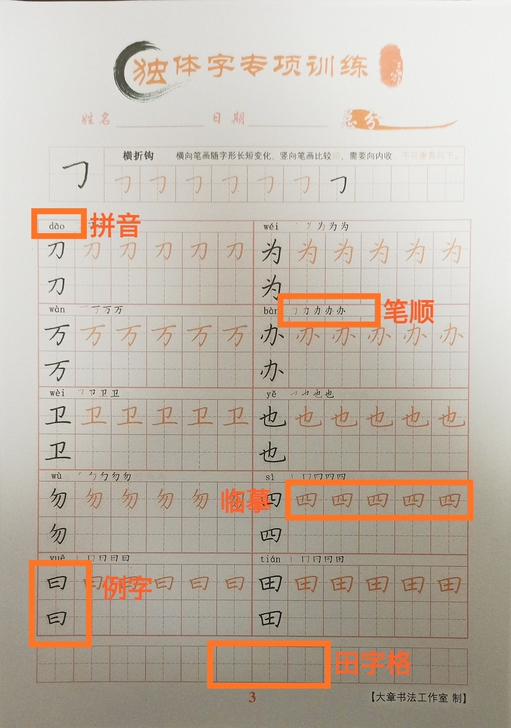 独体字专项训练
姓名 日期 总分
横折钩 横向笔画随字形长短变化，竖向笔画比较 ，需要向内收
𠃌 𠃌 𠃌 𠃌 𠃌 𠃌 𠃌 𠃌
dāo 拼音
刀 刀 刀 刀 刀 刀
刀
wéi 丶 ソ 为 为
为 为 为 为 为 为
为
wàn 一 丆 万
万 万 万 万 万 万
万
bàn 𠃌 力 办 办 笔顺
办 办 办 办 办 办
办
wèi 𠃌 卩 卫
卫 卫 卫 卫 卫 卫
卫
yě 也 也
也 也 也 也 也 也
也
wù 丿 勹 勿 勿
勿 勿 勿 勿 勿 勿
勿
临摹
sì 丨 冂 四 四
四 四 四 四 四 四
四
yuē 丨 冂 日 曰
曰 曰 曰 曰 曰 曰
曰
例字
tián 丨 冂 日 田
田 田 田 田 田 田
田
田字格
3
【大章书法工作室 制】